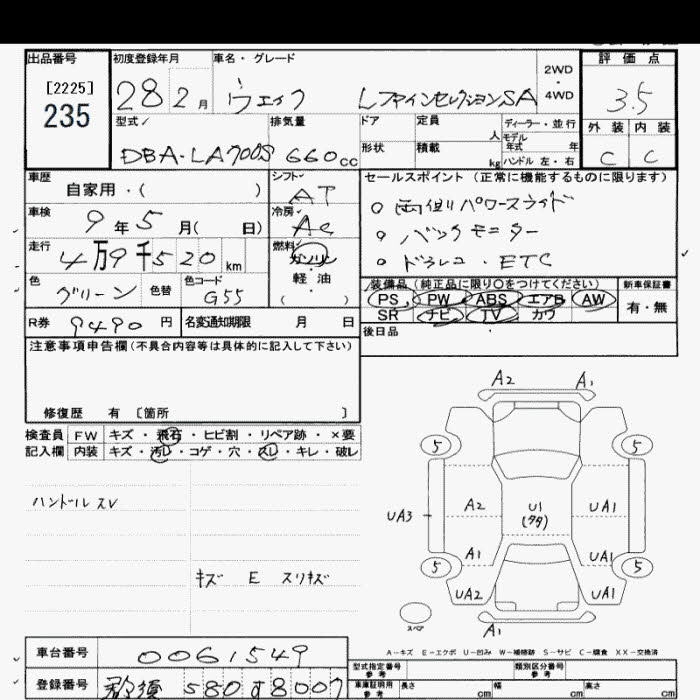 出品番号 初度登録年月 車名・グレード 評価点
[2225]
235
28 2月 ウェイク LファインセレクションSA 2WD・4WD 3.5
型式 排気量 ドア 定員 人 ディーラー・並行 外装 内装
モデル年式 年
DBA-LA700S 660cc 形状 積載 kg ハンドル 左・右 C C
車歴 自家用・( ) シフト AT セールスポイント(正常に機能するものに限ります)
車検 9年5月( 日) 冷房 AC ○両側パワースライド
○バックモニター
走行 4万9千520km 燃料 ガソリン ○ドラレコ・ETC
軽油
( )
色 グリーン 色替 色コード G55 装備品(純正品に限り○をつけてください) 新車保証書
PS PW ABS エアB AW 有・無
SR ナビ TV カワ
R券 9490円 名変通知期限 月 日 後日品
注意事項申告欄(不具合内容等は具体的に記入して下さい)
修復歴 有 〔箇所 〕
検査員 FW キズ・飛石・ヒビ割・リペア跡・×要
記入欄 内装 キズ・汚レ・コゲ・穴・スレ・キレ・破レ
ハンドルスレ
キズ E スリキズ
A2 A1
5 5
UA3 A2 U1 UA1
A1 UA1
5 5
UA2 UA1
スペア A1
A-キズ E-エクボ U-凹み W-補修跡 S-サビ C-腐食 XX-交換済
車台番号 0061549 型式指定番号 参考 類別区分番号 参考
登録番号 那須 580 す8007 車庫証明用 参考 長さ cm 幅 cm 高さ cm